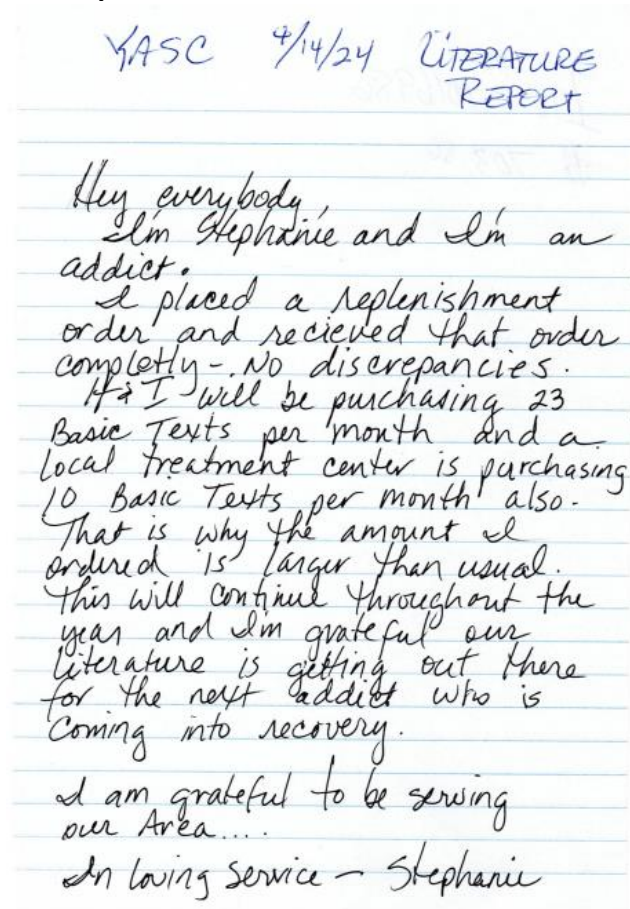 YASC 4/14/24 LITERATURE
REPORT
Hey everybody,
I'm Stephanie and I'm an
addict.
I placed a replenishment
order and recieved that order
completly - No discrepancies.
H & I will be purchasing 23
Basic Texts per month and a
local treatment center is purchasing
10 Basic Texts per month also.
That is why the amount I
ordered is larger than usual.
This will continue throughout the
year and I'm grateful our
literature is getting out there
for the next addict who is
coming into recovery.
I am grateful to be serving
our Area....
In loving service - Stephanie